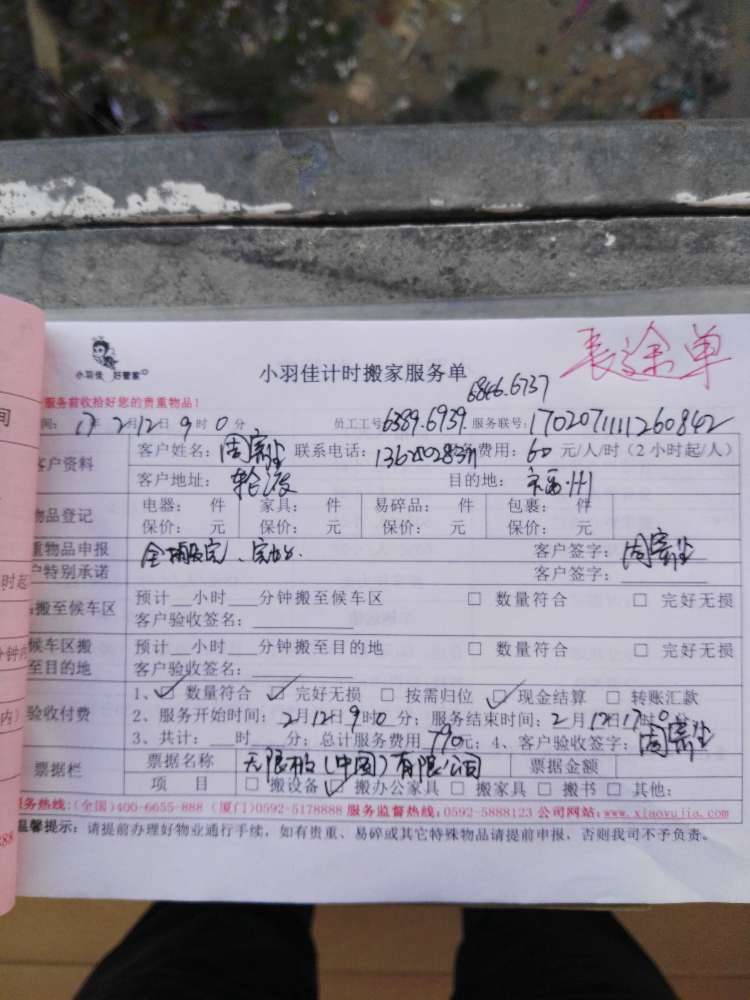 小羽佳 好管家
小羽佳计时搬家服务单
长途单
6866.6737
服务前收拾好您的贵重物品!
间: 17年2月12日9时0分 员工工号6389.6939 服务联号:170207111260842
客户资料 客户姓名: 周 联系电话: 服务费用: 60元/人/时(2小时起/人)
客户地址: 轮渡 目的地: 福州
物品登记 电器: 件 家具: 件 易碎品: 件 包裹: 件
保价: 元 保价: 元 保价: 元 保价: 元
重物品申报 客户签字: 周
户特别承诺 客户签字:
搬至候车区 预计__小时___分钟搬至候车区 □ 数量符合 □ 完好无损
客户验收签名:
候车区搬至目的地 预计__小时___分钟搬至目的地 □ 数量符合 □ 完好无损
客户验收签名:
验收付费 1、☑ 数量符合 ☑ 完好无损 □ 按需归位 ☑ 现金结算 □ 转账汇款
2、服务开始时间: 2月12日9时0分; 服务结束时间: 2月12日17时0分
3、共计: ___时___分; 总计服务费用790元; 4、客户验收签字: 周
票据栏 票据名称 无限极(中国)有限公司 票据金额
项 目 □ 搬设备 ☑ 搬办公家具 □ 搬家具 □ 搬书 □ 其他:
服务热线:(全国)400-6655-888 (厦门)0592-5178888 服务监督热线:0592-5888123 公司网站:www.xiaoyujia.com
温馨提示: 请提前办理好物业通行手续,如有贵重、易碎或其它特殊物品请提前申报,否则我司不予负责。